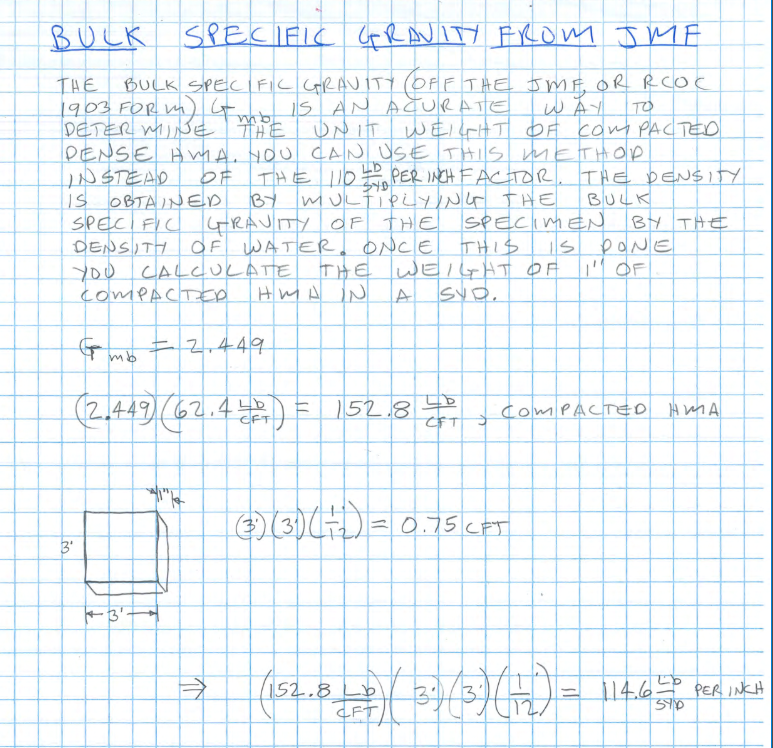 BULK SPECIFIC GRAVITY FROM JMF
THE BULK SPECIFIC GRAVITY (OFF THE JMF, OR RCOC
1903 FORM) Gmb IS AN ACURATE WAY TO
DETERMINE THE UNIT WEIGHT OF COMPACTED
DENSE HMA. YOU CAN USE THIS METHOD
INSTEAD OF THE 110 Lb/SYD PER INCH FACTOR. THE DENSITY
IS OBTAINED BY MULTIPLYING THE BULK
SPECIFIC GRAVITY OF THE SPECIMEN BY THE
DENSITY OF WATER. ONCE THIS IS DONE
YOU CALCULATE THE WEIGHT OF 1" OF
COMPACTED HMA IN A SYD.
Gmb = 2.449
(2.449)(62.4 Lb/CFT) = 152.8 Lb/CFT, COMPACTED HMA
1"
3' (3')(3')(1'/12) = 0.75 CFT
3'
⇒ (152.8 Lb/CFT)(3')(3')(1'/12) = 114.6 Lb/SYD PER INCH